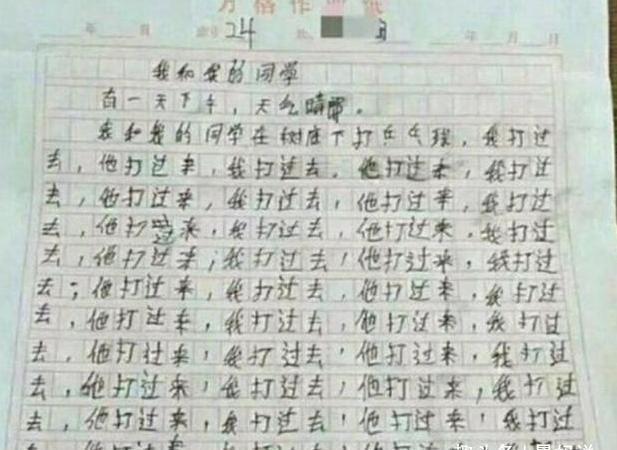 方格作业纸
年 月 24 年 月 日
我和我的同学
有一天下午,天气晴。
我和我的同学在树底下打乒乓球,我打过
去,他打过来,我打过去,他打过来,我打过
去,他打过来,我打过去,他打过来,我打过
去,他打过来,我打过去,他打过来,我打过
去,他打过来;我打过去,他打过来,我打过
去;他打过来,我打过去,他打过来,我打过
去,他打过来,我打过去,他打过来,我打过
去,他打过来,我打过去,他打过来,我打过
去,他打过来,我打过去,他打过来,我打过
去,他打过来,我打过去,他打过来,我打过
他打过来,我打过去,他打过来,我打